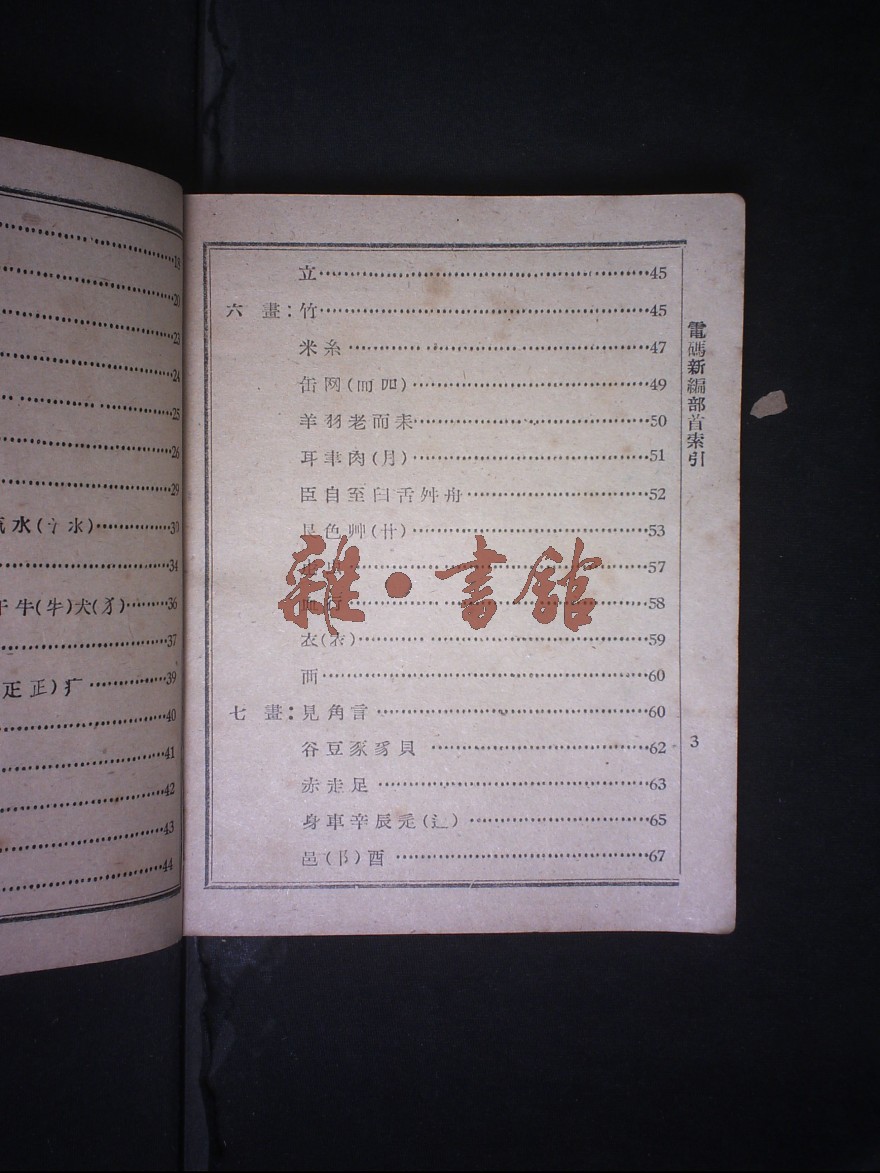 18
20
23
24
25
26
29
水(氵氺)……30
34
牛(牜)犬(犭)……36
37
疋正)疒……39
40
41
42
43
44
立……45
六畫：竹……45
米糸……47
缶网(罒㓁)……49
羊羽老而耒……50
耳聿肉(月)……51
臣自至臼舌舛舟……52
艮色艸(卄)……53
57
行……58
衣(衤)……59
襾……60
七畫：見角言……60
谷豆豕豸貝……62
赤走足……63
身車辛辰辵(辶)……65
邑(阝)酉……67
電碼新編部首索引
3
雜·書館